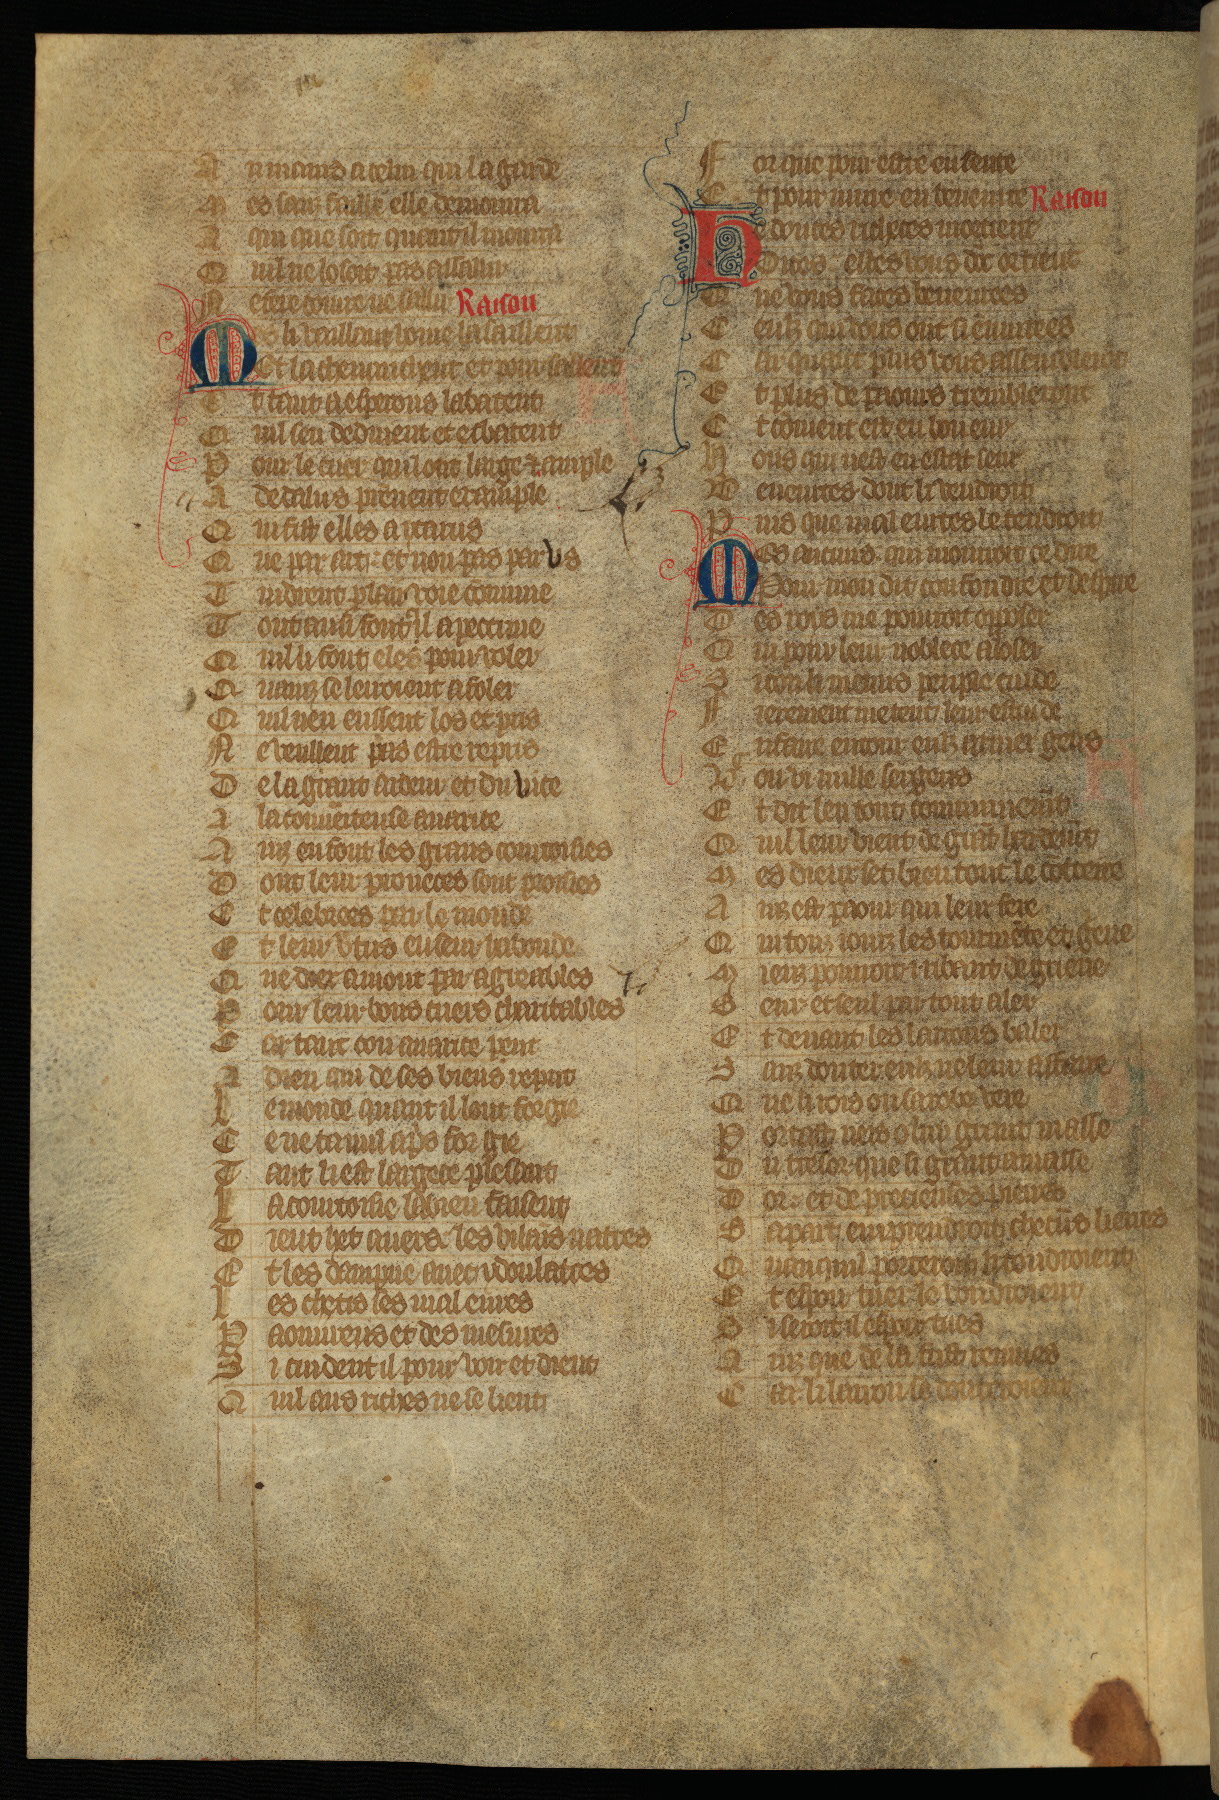 A u mains a celui qui la garde
M es sanz faille elle demoura
A qui que soit quant il moura
Q uil ne losoit pas assaillir
N e faire toute ne saillir Raison
M es li vaillant home lasaillent
Et la chevauchent et
E t tant as esperons la batent
Q uil sen deduient et esbatent
P our le cuer quil ont large & ample
A dedalus prenent example
Q ui fist elles a ycarus
Q ue par art et non pas par us
T indrent par lair voie comune
T out ausi font cil a peccune
Q uil li font eles pour voler
Q uainz se leiroient afoler
Q uil nen eussent los et pris
N e veullent pas estre repris
D e la grant ardeur et du vice
A la couveiteuse avarice
A inz en font les grans courtoisies
D ont leur proueces sont proisies
E t celebrees par le monde
E t leur vtus en seur habonde
Q ue diex a mout pour agreables
P our leur bons cuers charitables
C ar tant con avarice peut
A dieu qui de ses biens reput
L e monde quant il lout forgie
C e ne ta nul apris fors gie
T ant li est largece plesant
L a courtoisie la bien faisent
D ieus het avers les vilains natres
E t les dampne avec ydoulatres
L es chetis les mal eures
P aoureus et des mesures
S i cuident il pour voir et dient
Q uil aus riches ne se lient
F or que pour estre en seurte
E t pour vivre en beneurte Raison
H e douces richeces mortieus
Dites
Q ue vous faites beneurees
C eulz qui vous ont si emurees
C ar quant plus vous assembleront
E t plus de paour trembleront
E t coment est en bon eur
H ons qui nest en estat seur
B eneurtes dont li vendroit
P uis que mal eurtes le tendroit
M es aucuns qui morroit ce dire
Pour mon dit confondre et despire
D es rois me pourroit oposer
Q ui pour leur noblece aloser
S i con li menus peuple cuide
F ierement metent leur estuide
E n faire entour eulz armer gens
V c ou vi mille sergens
E t dit len tout communement
Q uil leur vient de grant hardement
M es dieux set bien tout le contraire
A inz est paour qui leur fere
Q ui touz iourz les tourmente et grieve
M ieuz pourroit i ribaut de grieve
S eur et seul par tout aler
E t devant les larrons baler
S anz douter eulz ne leur affaire
Q ue li rois o sa robe vere
P ortast neis o lui grant masse
D u tresor que si grant amasse
D or et de precieuses pierres
S a part en prendroit chascuns lierres
Q uanquil porteroit li toudroient
E t espoir tuer le voudroient
S i seroit il espoir tues
A inz que de la fust remues
C ar li larron se douteroient